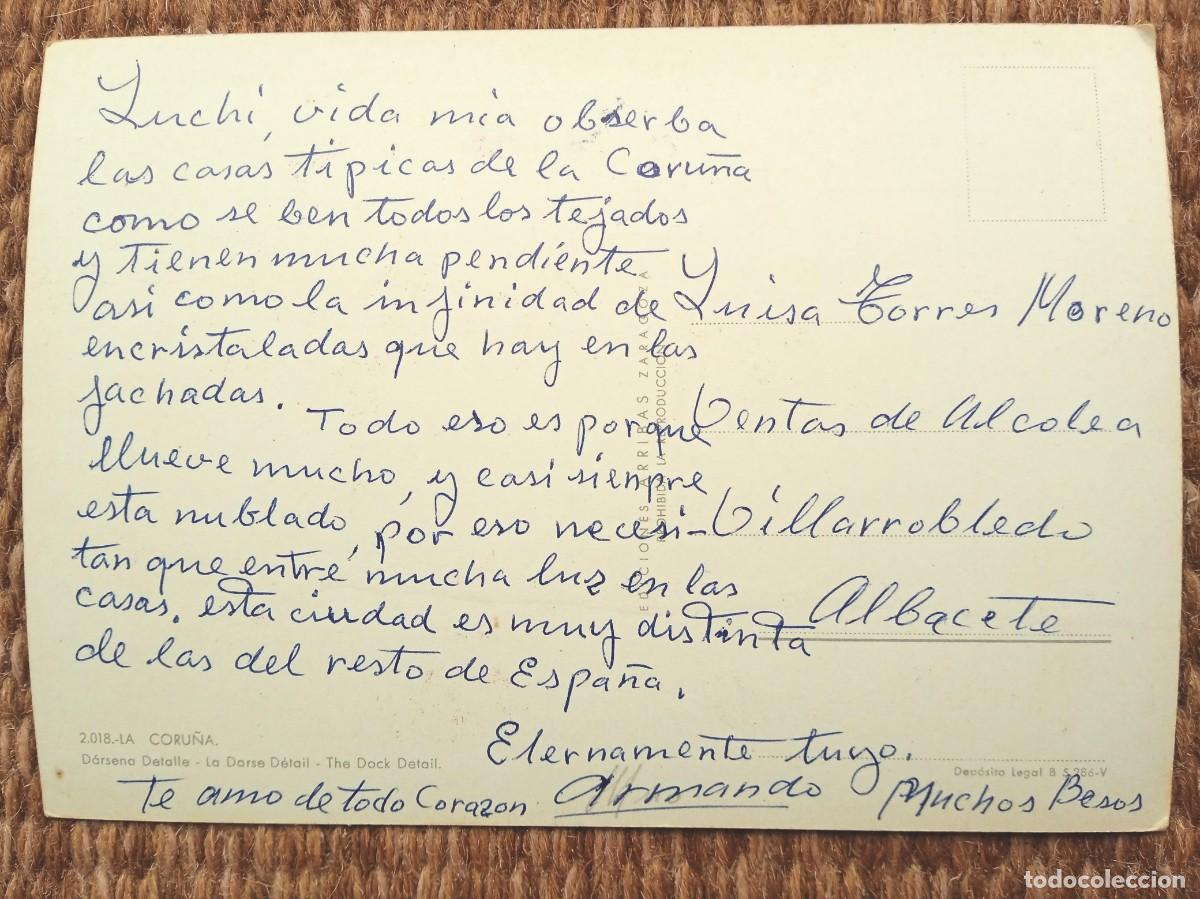 Luchi, vida mia obserba
las casas tipicas de la Coruña
como se ben todos los tejados
y tienen mucha pendiente
asi como la infinidad de
encristaladas que hay en las
fachadas.
Todo eso es porque
llueve mucho, y casi sienpre
esta nublado, por eso necesi-
tan que entre mucha luz en las
casas. esta ciudad es muy distinta
de las del resto de España.
Eternamente tuyo.
Te amo de todo Corazon
Armando
Muchos Besos
Luisa Torres Moreno
Ventas de Alcolea
Villarrobledo
Albacete
EDICIONES ARRIBAS ZARAGOZA
PROHIBIDA LA REPRODUCCION
2.018.-LA CORUÑA.
Dársena Detalle - La Darse Détail - The Dock Detail.
Depósito Legal B 5.286-V
todocoleccion